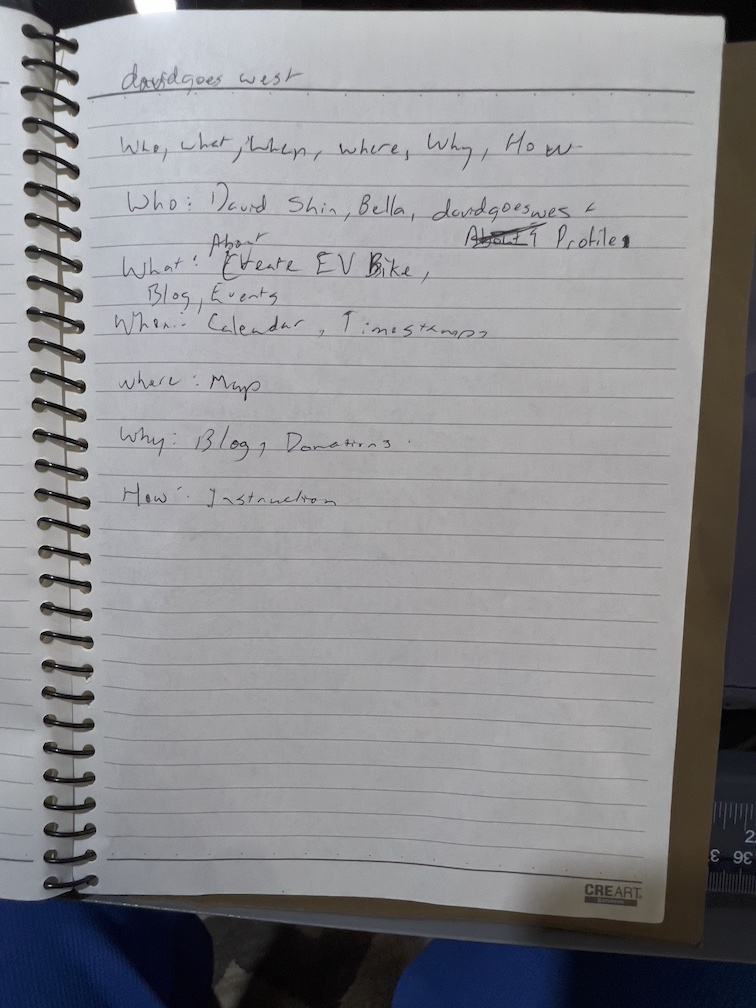 davidgoes west
Who, what, When, where, Why, How
Who: David Shin, Bella, davidgoeswes
Profile
About
What: Create EV Bike,
Blog, Events
When: Calendar, Timestamps
where: Map
Why: Blog, Donations.
How: Instruction
CREART
2
36